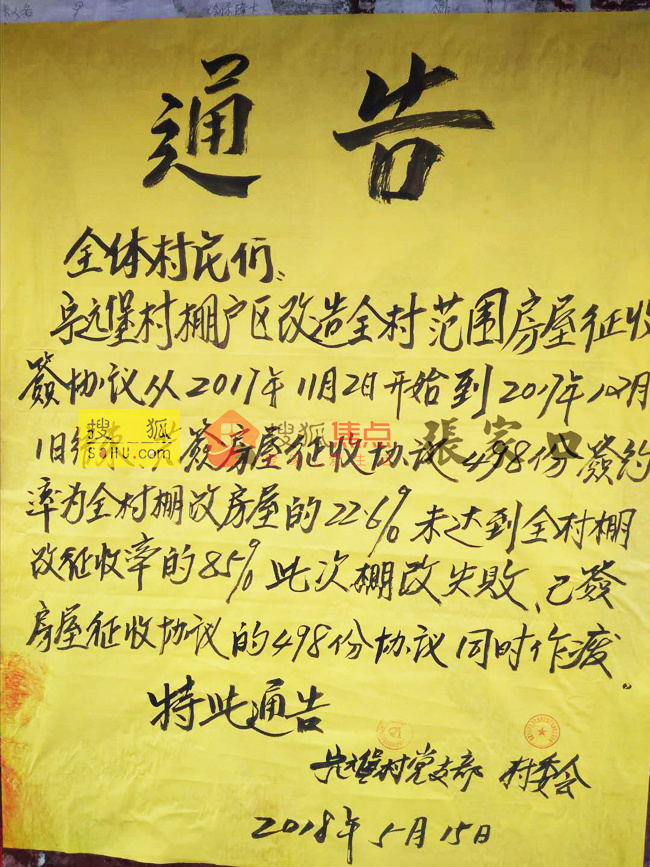 通告
全体村民们：
宁远堡村棚户区改造全村范围房屋征收
簽协议从2017年11月2日开始到2017年12月
1日 簽房屋征收协议498份簽约
率为全村棚改房屋的22.6%未达到全村棚
改征收率的85%此次棚改失败、已簽
房屋征收协议的498份协议同时作废。
特此通告
宁远堡村党支部 村委会
2018年5月15日
搜狐
sohu.com
搜狐焦点
張家口